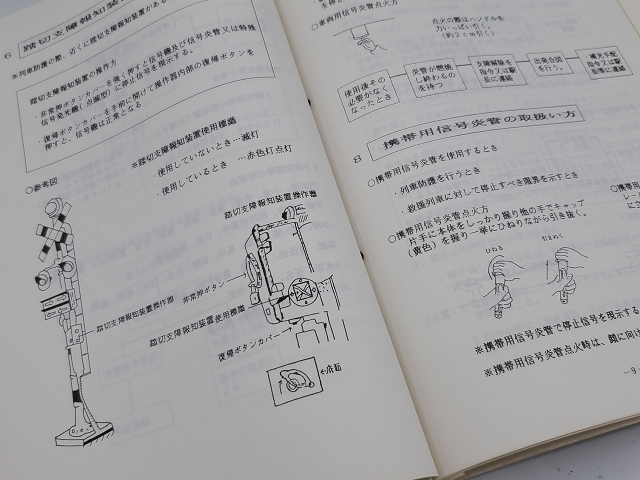 6 踏切支障報知装
※列車防護の際、近くに踏切支障報知装置がある
踏切支障報知装置の操作方
・非常押ボタンカバーを強く押すと信号機及び信号炎管又は特殊
信号発光機(点滅型)に停止信号を現示する。
・復帰ボタンカバーを手前に開けて操作器内部の復帰ボタンを
押すと、信号機は正常となる
※踏切支障報知装置使用標識
・使用していないとき…滅灯
・使用しているとき …赤色灯点灯
○参考図
踏切支障報知装置操作器
踏切支障報知装置操作器
非常押ボタン
踏切支障報知装置使用標識
復帰ボタンカバー
←底面
○車両用信号炎管点火方
点火の際はハンドルを
力いっぱい引く。
(約2cm引く)
使用後その
必要がなく
なったとき
炎管が燃焼
し終わるの
を待つ
支障解除を
指令又は駅
長に連絡
出発合図
を行う。
指令又は駅
長等に連絡
8 携帯用信号炎管の取扱い方
○携帯用信号炎管を使用するとき
・列車防護を行うとき
・救援列車に対して停止すべき限界を示すとき
○携帯用信号炎管点火方
片手に本体をしっかり握り他の手でキャップ
(黄色)を握り一挙にひねりながら引き抜く。
ひねる
引きぬく
○携帯
レー
にさ
※携帯用信号炎管で停止信号を現示する
※携帯用信号炎管点火時は、顔に向け
~9